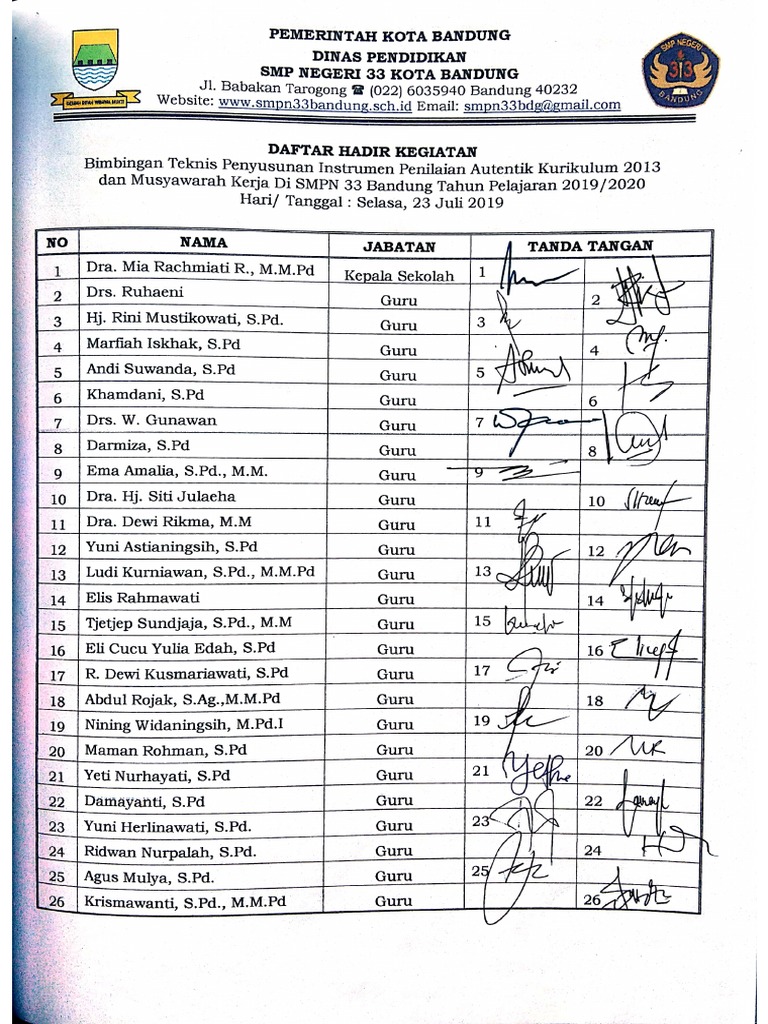 PEMERINTAH KOTA BANDUNG
DINAS PENDIDIKAN
SMP NEGERI 33 KOTA BANDUNG
Jl. Babakan Tarogong ☎ (022) 6035940 Bandung 40232
Website: www.smpn33bandung.sch.id Email: smpn33bdg@gmail.com
SMP NEGERI
33
BANDUNG
DAFTAR HADIR KEGIATAN
Bimbingan Teknis Penyusunan Instrumen Penilaian Autentik Kurikulum 2013
dan Musyawarah Kerja Di SMPN 33 Bandung Tahun Pelajaran 2019/2020
Hari/ Tanggal : Selasa, 23 Juli 2019
NO NAMA JABATAN TANDA TANGAN
1 Dra. Mia Rachmiati R., M.M.Pd Kepala Sekolah 1
2 Drs. Ruhaeni Guru 2
3 Hj. Rini Mustikowati, S.Pd. Guru 3
4 Marfiah Iskhak, S.Pd Guru 4
5 Andi Suwanda, S.Pd Guru 5
6 Khamdani, S.Pd Guru 6
7 Drs. W. Gunawan Guru 7
8 Darmiza, S.Pd Guru 8
9 Ema Amalia, S.Pd., M.M. Guru 9
10 Dra. Hj. Siti Julaeha Guru 10
11 Dra. Dewi Rikma, M.M Guru 11
12 Yuni Astianingsih, S.Pd Guru 12
13 Ludi Kurniawan, S.Pd., M.M.Pd Guru 13
14 Elis Rahmawati Guru 14
15 Tjetjep Sundjaja, S.Pd., M.M Guru 15
16 Eli Cucu Yulia Edah, S.Pd Guru 16
17 R. Dewi Kusmariawati, S.Pd Guru 17
18 Abdul Rojak, S.Ag.,M.M.Pd Guru 18
19 Nining Widaningsih, M.Pd.I Guru 19
20 Maman Rohman, S.Pd Guru 20
21 Yeti Nurhayati, S.Pd Guru 21
22 Damayanti, S.Pd Guru 22
23 Yuni Herlinawati, S.Pd. Guru 23
24 Ridwan Nurpalah, S.Pd. Guru 24
25 Agus Mulya, S.Pd. Guru 25
26 Krismawanti, S.Pd., M.M.Pd Guru 26